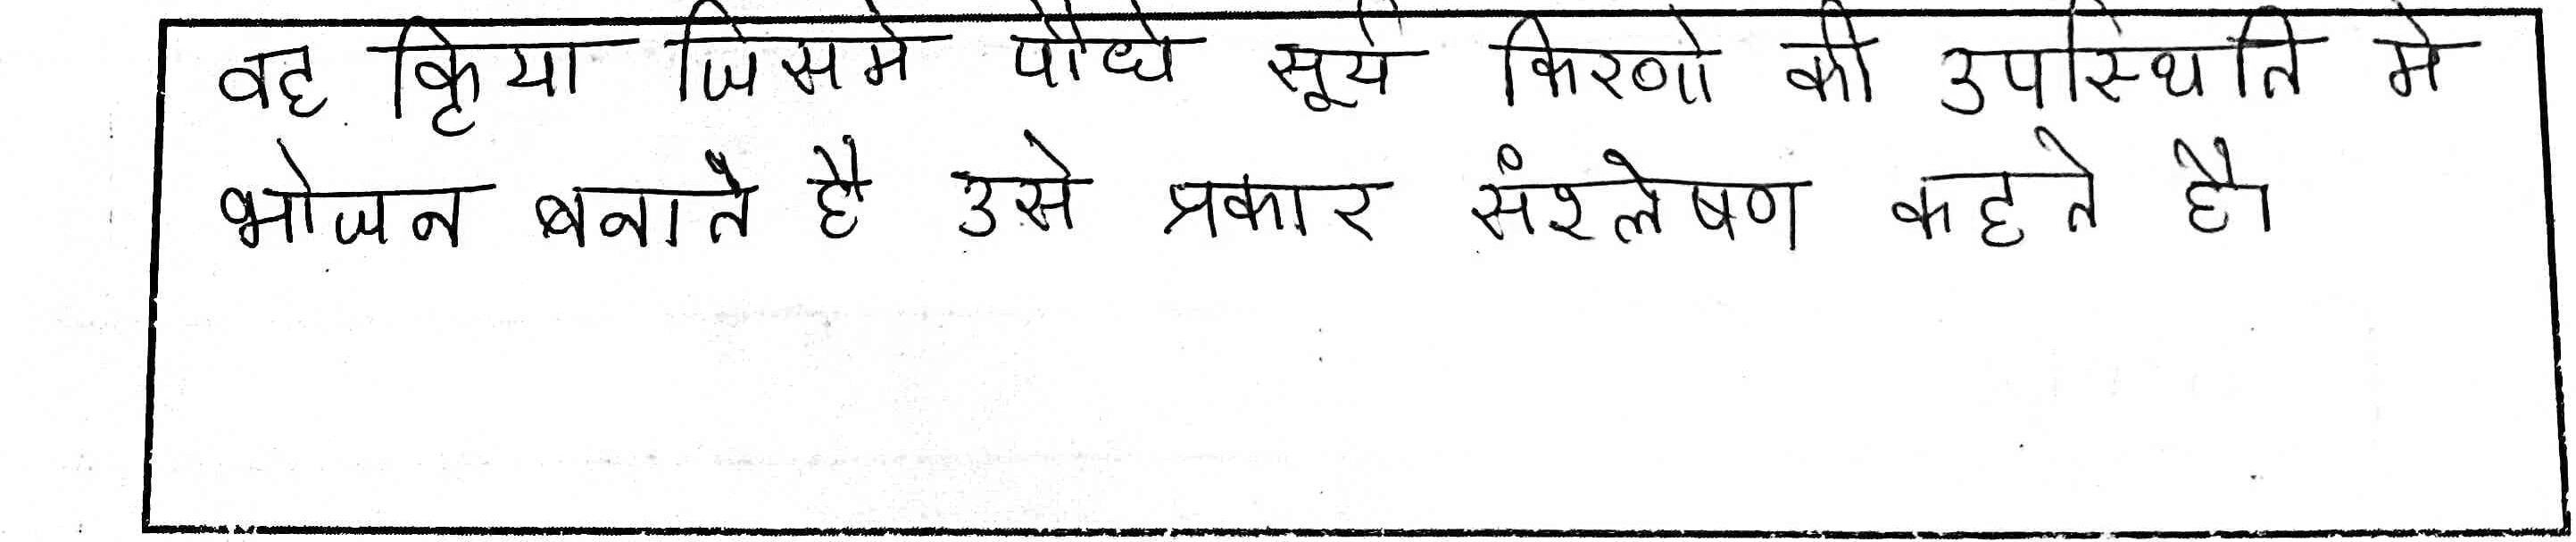 वह क्रिया जिसमे पौधे सूर्य किरणो की उपस्थिति मे
भोजन बनाते है उसे प्रकार संश्लेषण कहते है।